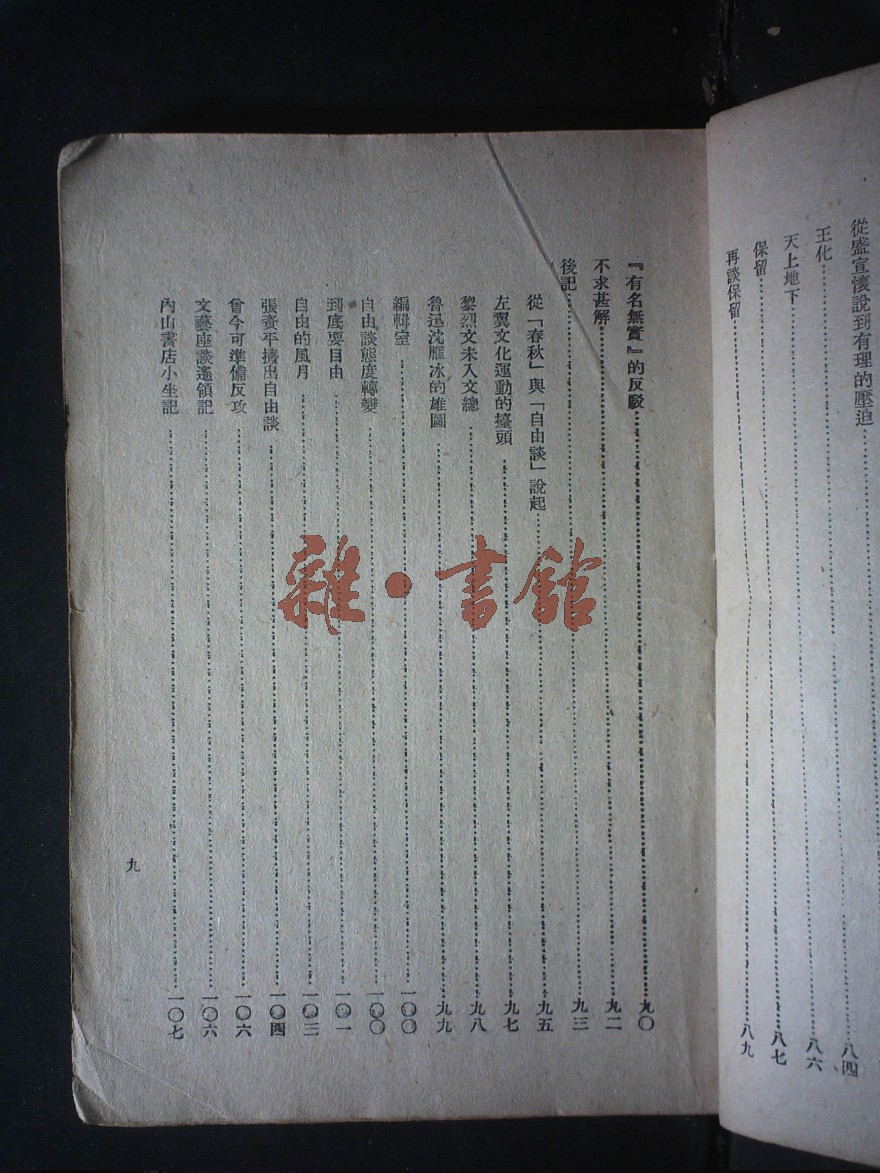 從盛宣懷說到有理的壓迫……八四
王化……八六
天上地下……八七
保留
再談保留……八九
『有名無實』的反駁……九〇
不求甚解……九二
後記……九三
從「春秋」與「自由談」說起……九五
左翼文化運動的擡頭……九七
黎烈文未入文總……九八
魯迅沈雁冰的雄圖……九九
編輯室……一〇〇
自由談態度轉變……一〇〇
到底要自由……一〇一
自由的風月……一〇三
張資平擠出自由談……一〇四
曾今可準備反攻……一〇六
文藝座談遙領記……一〇六
內山書店小坐記……一〇七
九
雜·書館